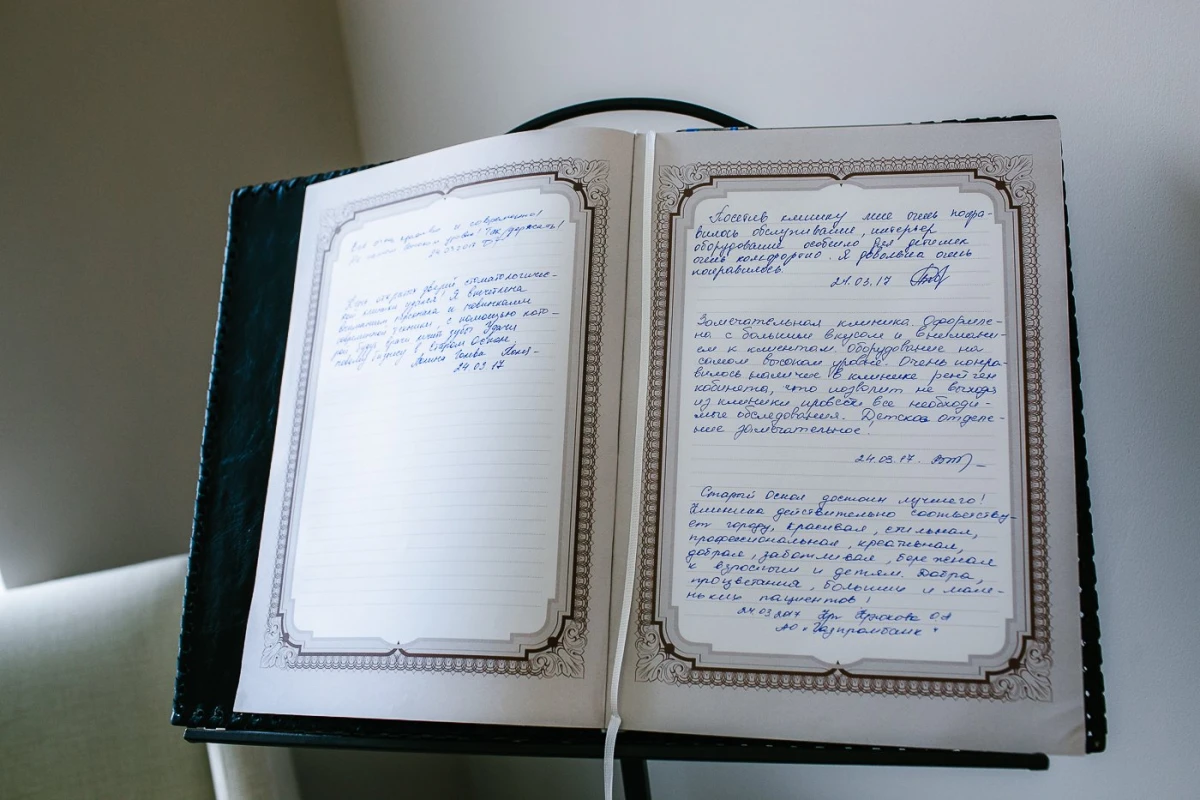 Всё очень красиво и современно!
На самом высоком уровне! Так держать!
24.03.2017
открыла дверей стоматологичес-
кой клиники удался! Я впечатлена
персонала и новинками
современной техники, с помощью кото-
рых врачи лечат зубы. Удачи
бизнесу в Старом Осколе,
24.03.17
Посетив клинику мне очень понра-
вилось обслуживание, интерьер
оборудование особенно для детишек
очень комфортно. Я довольна очень
понравилось
21.03.17
Замечательная клиника. Оформле-
на с большим вкусом и внимани-
ем к клиентам. Оборудование на
самом высоком уровне. Очень понра-
вилось наличие в клинике рентген
кабинета, что позволит не выходя
из клиники провести все необходи-
мые обследования. Детское отделе-
ние замечательное.
24.03.17.
Старый Оскол достоин лучшего!
Клиника действительно соответству-
ет городу, красивая, стильная,
профессиональная, креативная,
добрая, заботливая, бережная
к взрослым и детям. Добра,
процветания, больших и мале-
ньких пациентов!
24.03.2017 Крюкова О.А
АО «Газпромбанк»